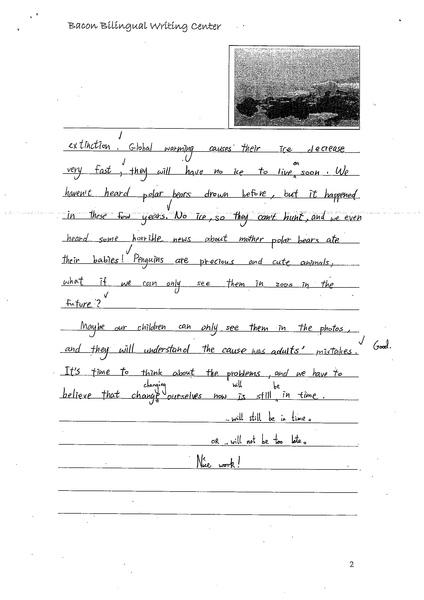 Bacon Bilingual Writing Center
extinction. Global warming causes their ice decrease
very fast, they will have no ice to live on soon. We
haven't heard polar bears drown before, but it happened
in these few years. No ice, so they can't hunt, and we even
heard some horrible news about mother polar bears ate
their babies! Penguins are precious and cute animals,
what if we can only see them in zoon in the
future?
Maybe our children can only see them in the photos,
and they will understand the cause was adults' mistakes. Good.
It's time to think about the problems, and we have to
changing will be
believe that change ourselves now is still in time.
..will still be in time.
or ..will not be too late.
Nice work!
2